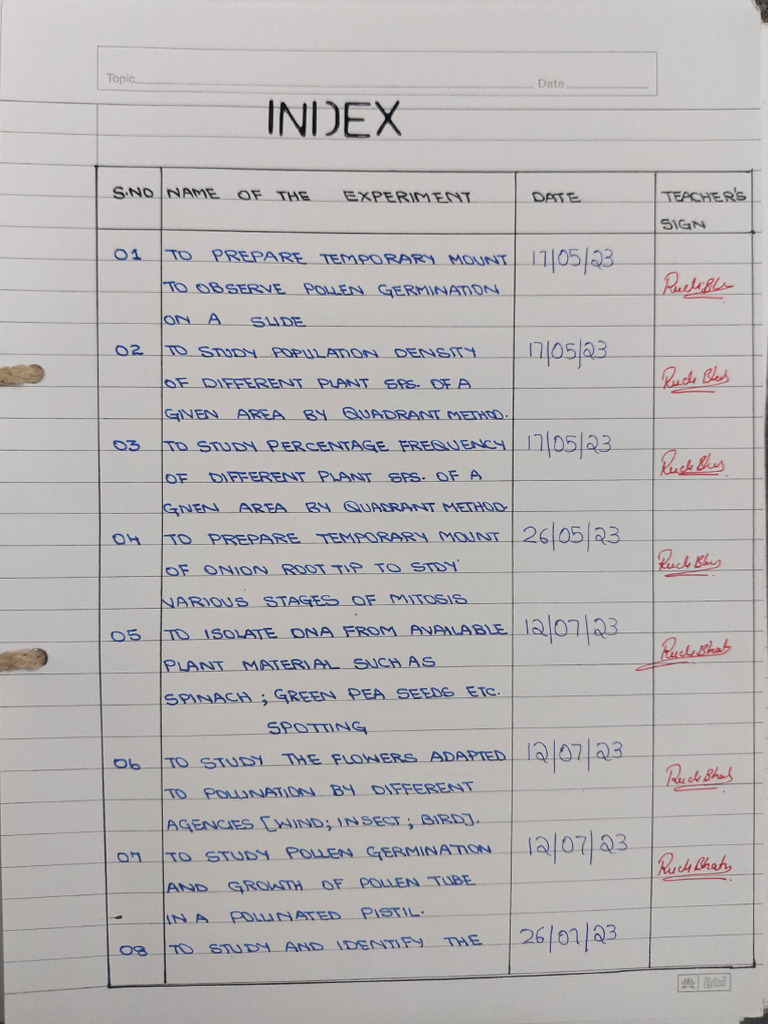 Topic Date
INDEX
S.NO NAME OF THE EXPERIMENT DATE TEACHER'S
SIGN
01 TO PREPARE TEMPORARY MOUNT 17/05/23
TO OBSERVE POLLEN GERMINATION
ON A SLIDE
02 TO STUDY POPULATION DENSITY 17/05/23
OF DIFFERENT PLANT SPS. OF A
GIVEN AREA BY QUADRANT METHOD.
03 TO STUDY PERCENTAGE FREQUENCY 17/05/23
OF DIFFERENT PLANT SPS. OF A
GIVEN AREA BY QUADRANT METHOD.
04 TO PREPARE TEMPORARY MOUNT 26/05/23
OF ONION ROOT TIP TO STDY
VARIOUS STAGES OF MITOSIS
05 TO ISOLATE DNA FROM AVAILABLE 12/07/23
PLANT MATERIAL SUCH AS
SPINACH ; GREEN PEA SEEDS ETC.
SPOTTING
06 TO STUDY THE FLOWERS ADAPTED 12/07/23
TO POLLINATION BY DIFFERENT
AGENCIES [WIND; INSECT; BIRD].
07 TO STUDY POLLEN GERMINATION 12/07/23
AND GROWTH OF POLLEN TUBE
IN A POLLINATED PISTIL.
08 TO STUDY AND IDENTIFY THE 26/07/23